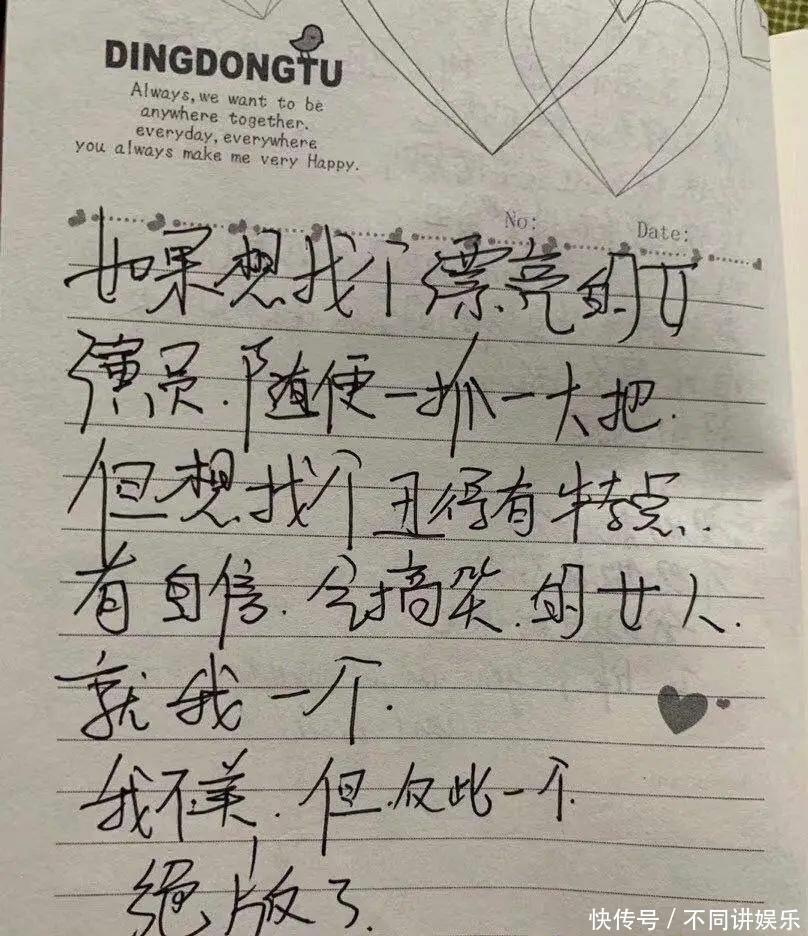 DINGDONGTU
Always, we want to be
anywhere together.
everyday, everywhere
you always make me very Happy.
No:
Date:
如果想找个漂亮的女
演员.随便一抓一大把.
但想找个丑得有特点.
有自信.会搞笑.的女人.
就我一个.
我不美.但.仅此一个.
绝版了.
快传号/不同讲娱乐